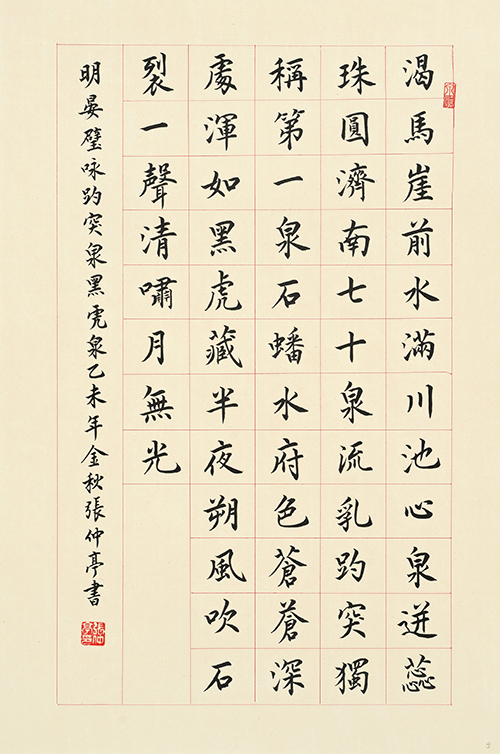 渴馬崖前水滿川池心泉迸蕊
珠圓濟南七十泉流乳趵突獨
稱第一泉石蟠水府色蒼蒼深
處渾如黑虎藏半夜朔風吹石
裂一聲清嘯月無光
明晏璧咏趵突泉黑虎泉乙未年金秋張仲亭書